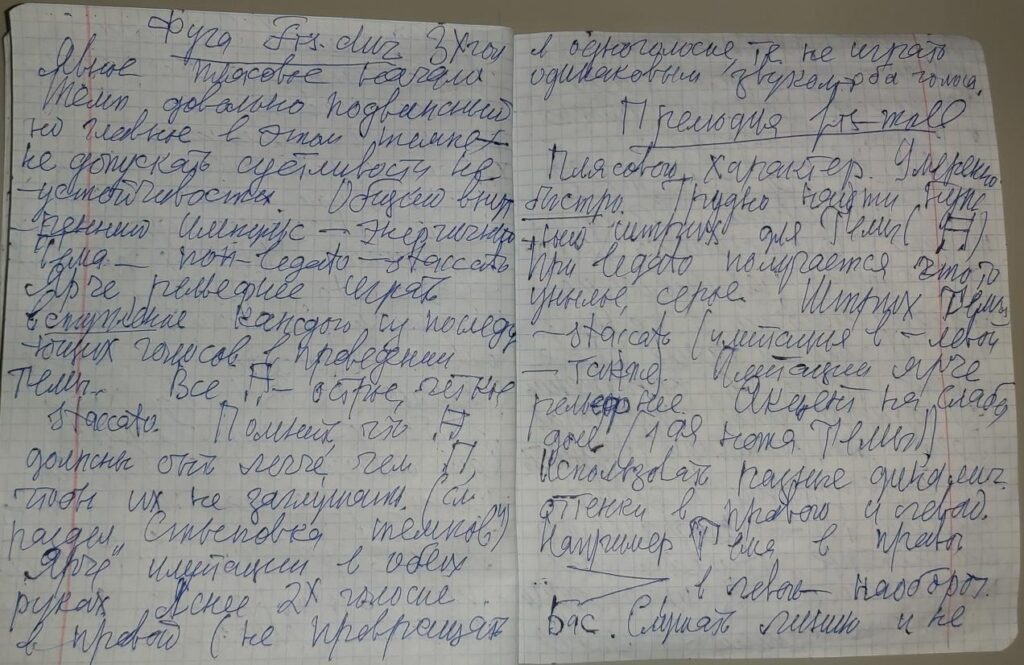 Фуга Fis-dur 3х гол
Явное плясовое начало
Темп довольно подвижный
но главное в этом темпе
не допускать суетливости не-
устойчивости Общего внут
ренний импульс — энергичного
Тема — non legato — staccato
Ярче рельефнее играть
вступление каждого из последу
ющих голосов в проведении
темы. Все — острые, четкие
staccato. Помнить, что
должны быть легче, чем
чтобы их не заглушать. (см
раздел „Стыковка темпов")
Ярче имитации в обеих
руках Яснее 2х голосие
в правой (не превращать
в одноголосие, т.е. не играть
одинаковым звуком оба голоса.
Прелюдия fis-moll
Плясовой характер. Умеренно
быстро. Трудно найти нуж
ный штрих для темы (
При legato получается что то
унылое, серое. Штрих темы
— staccato (имитация в — левой
— также). Имитации ярче
рельефнее. Акцент на слабую
долю (1ая нота темы)
Использовать разные динамич.
оттенки в правой и левой.
Например Тема в правой
в левой — наоборот.
Бас. Слушать линию и не